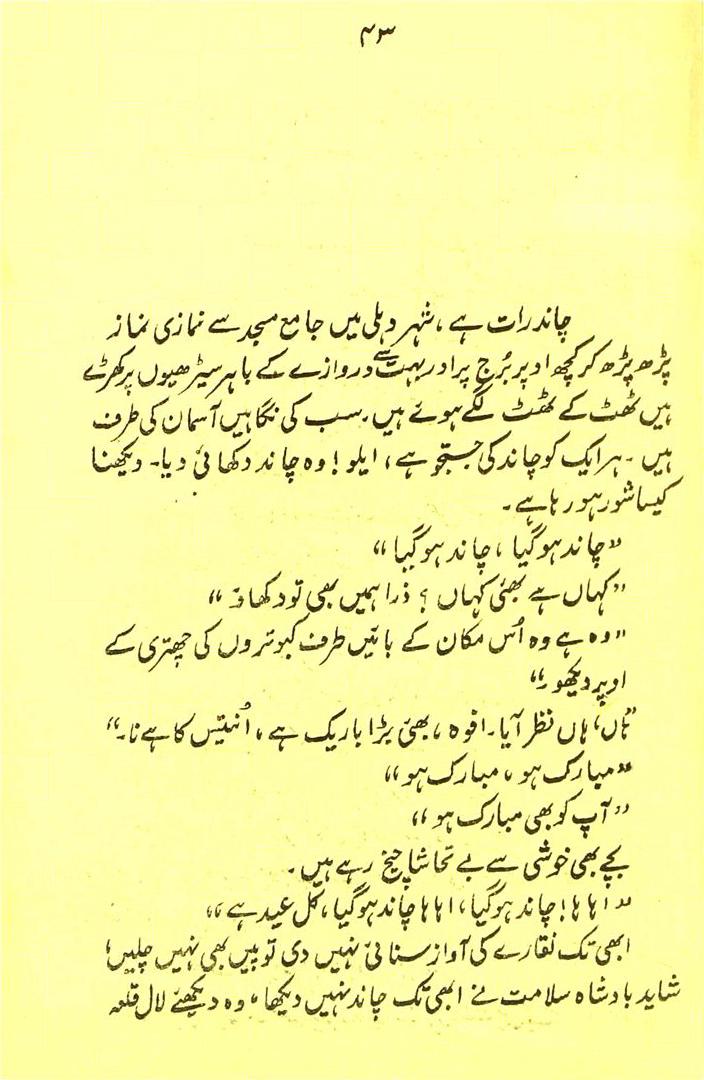 ۴۳
چاند رات ہے، شہر دہلی میں جامع مسجد سے نمازی نماز
پڑھ پڑھ کر کچھ اوپر بُرج پر اور بہت سے دروازے کے باہر سیڑھیوں پر کھڑے
ہیں ٹھٹ کے ٹھٹ لگے ہوئے ہیں۔ سب کی نگاہیں آسمان کی طرف
ہیں۔ ہر ایک کو چاند کی جستجو ہے، ایلو! وہ چاند دکھائی دیا۔ دیکھنا
کیسا شور ہو رہا ہے۔
”چاند ہو گیا، چاند ہو گیا“
”کہاں ہے بھئی کہاں؟ ذرا ہمیں بھی تو دکھاؤ“
”وہ ہے وہ اُس مکان کے بائیں طرف کبوتروں کی چھتری کے
اوپر دیکھو۔“
”ہاں، ہاں نظر آیا۔ افوہ، بھئی بڑا باریک ہے، اُنتیس کا ہے نا۔“
”مبارک ہو، مبارک ہو“
”آپ کو بھی مبارک ہو“
بچے بھی خوشی سے بے تحاشا چیخ رہے ہیں۔
”اہا ہا! چاند ہو گیا، اہا ہا چاند ہو گیا، کل عید ہے“
ابھی تک نقارے کی آواز سنائی نہیں دی توپیں بھی نہیں چلیں،
شاید بادشاہ سلامت نے ابھی تک چاند نہیں دیکھا، وہ دیکھئے لال قلعہ